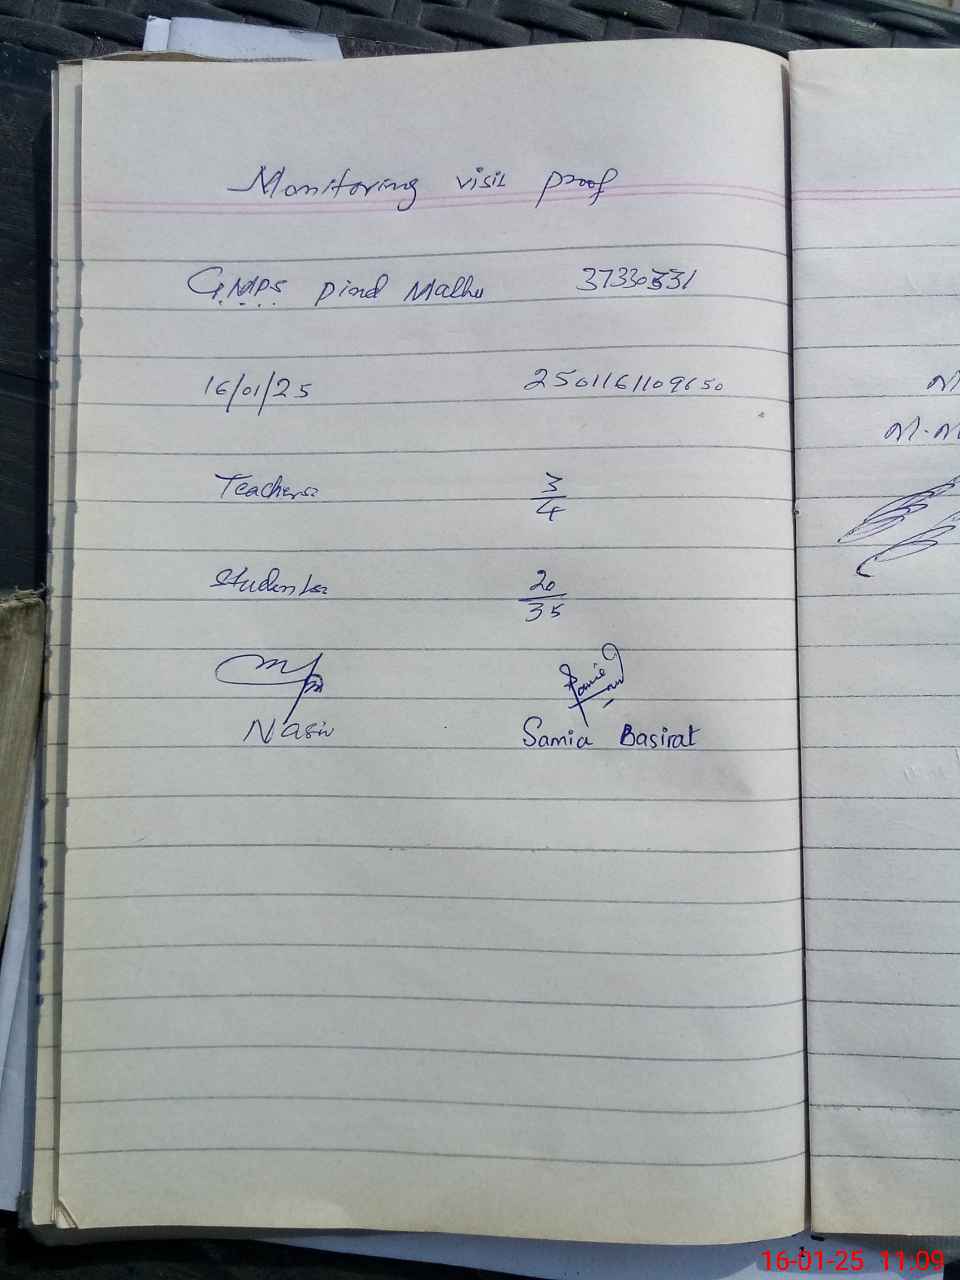 Monitoring visit proof
GMPS Pind Malhu 37330331
16/01/25 2501161109650
Teachers: 3/4
Students: 20/35
Nasir Samia Basirat
16-01-25 11:09